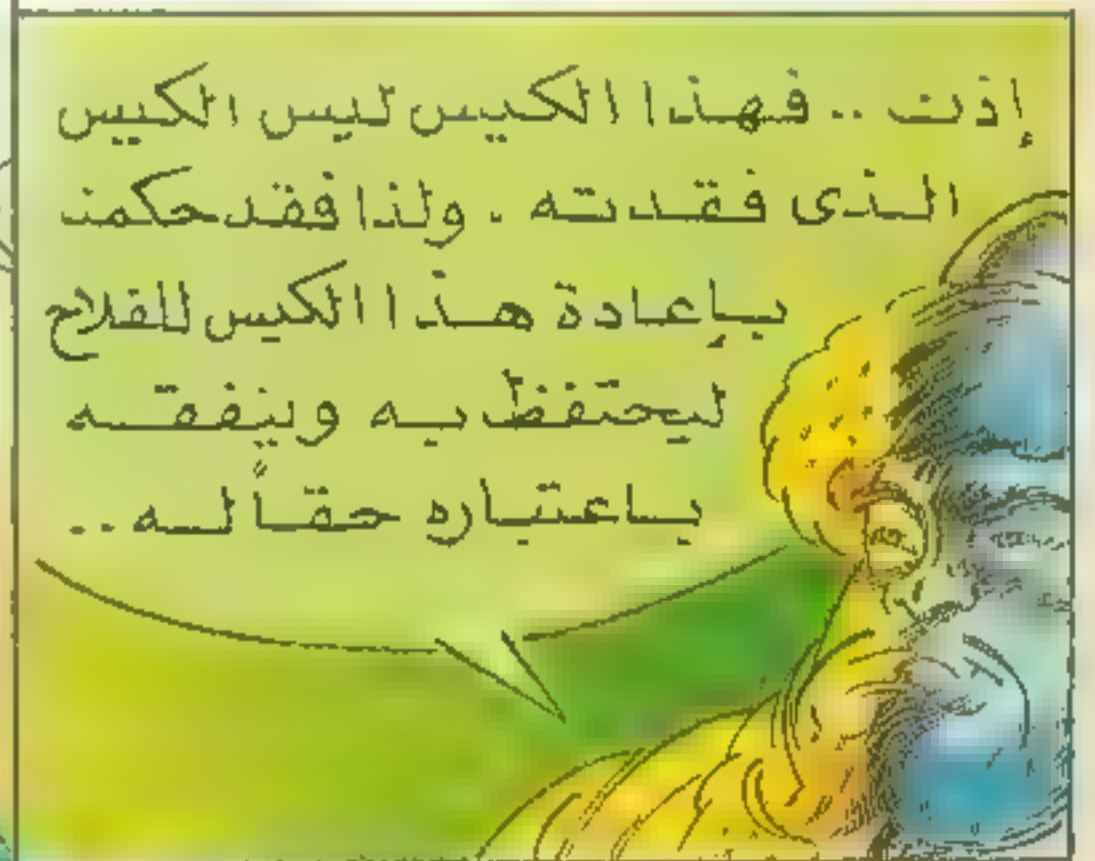 إذن .. فهذا الكيس ليس الكيس
الذى فقدته . ولذا فقد حكمنا
بإعادة هذا الكيس للفلاح
ليحتفظ به وينفقه
باعتباره حقاً له ..